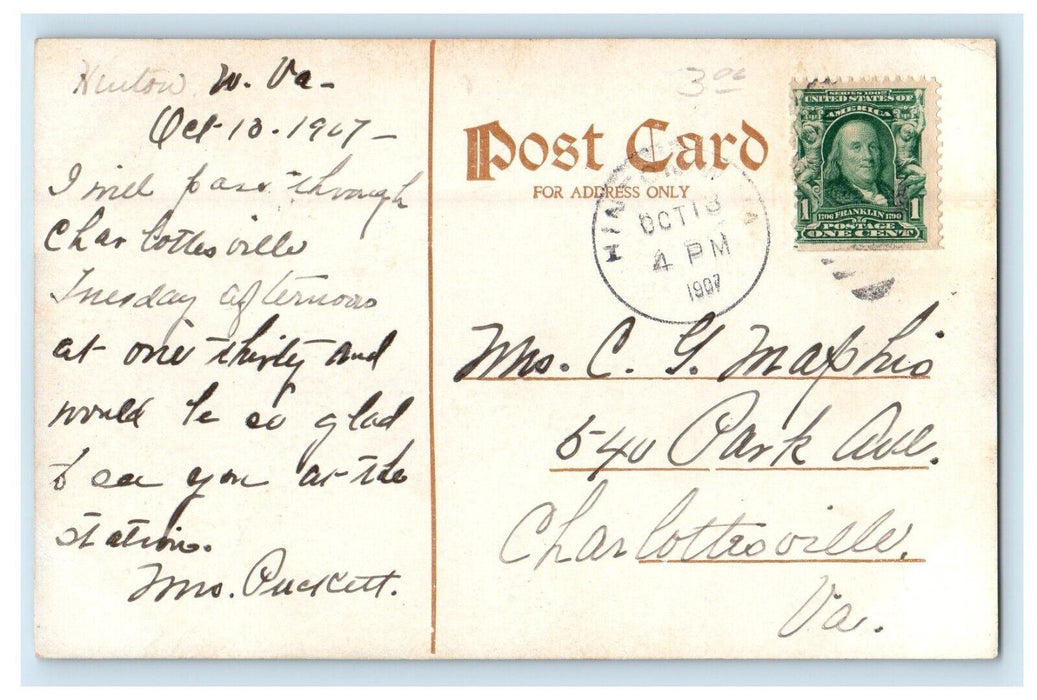 Hinton W. Va-
Oct-13-1907-
I will pass through
Charlottesville
Tuesday afternoon
at one thirty and
would be so glad
to see you at the
station.
Mrs. Puckett.
3.00
Post Card
FOR ADDRESS ONLY
HINTON
OCT 13
4 PM
1907
SERIES 1902
UNITED STATES OF
AMERICA
1706 FRANKLIN 1790
POSTAGE
1 ONE CENT 1
Mrs. C. G. Maphis
540 Park Ave.
Charlottesville.
Va.